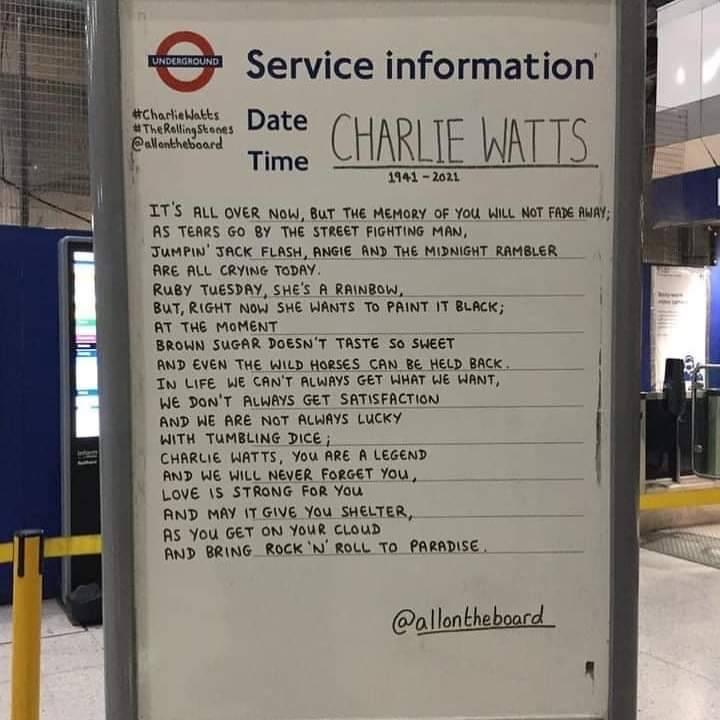 UNDERGROUND
Service information
#CharlieWatts
#TheRollingStones
@allontheboard
Date
Time
CHARLIE WATTS
1941 - 2021
IT'S ALL OVER NOW, BUT THE MEMORY OF YOU WILL NOT FADE AWAY;
AS TEARS GO BY THE STREET FIGHTING MAN,
JUMPIN' JACK FLASH, ANGIE AND THE MIDNIGHT RAMBLER
ARE ALL CRYING TODAY.
RUBY TUESDAY, SHE'S A RAINBOW,
BUT, RIGHT NOW SHE WANTS TO PAINT IT BLACK;
AT THE MOMENT
BROWN SUGAR DOESN'T TASTE SO SWEET
AND EVEN THE WILD HORSES CAN BE HELD BACK.
IN LIFE WE CAN'T ALWAYS GET WHAT WE WANT,
WE DON'T ALWAYS GET SATISFACTION
AND WE ARE NOT ALWAYS LUCKY
WITH TUMBLING DICE;
CHARLIE WATTS, YOU ARE A LEGEND
AND WE WILL NEVER FORGET YOU,
LOVE IS STRONG FOR YOU
AND MAY IT GIVE YOU SHELTER,
AS YOU GET ON YOUR CLOUD
AND BRING ROCK 'N' ROLL TO PARADISE.
@allontheboard